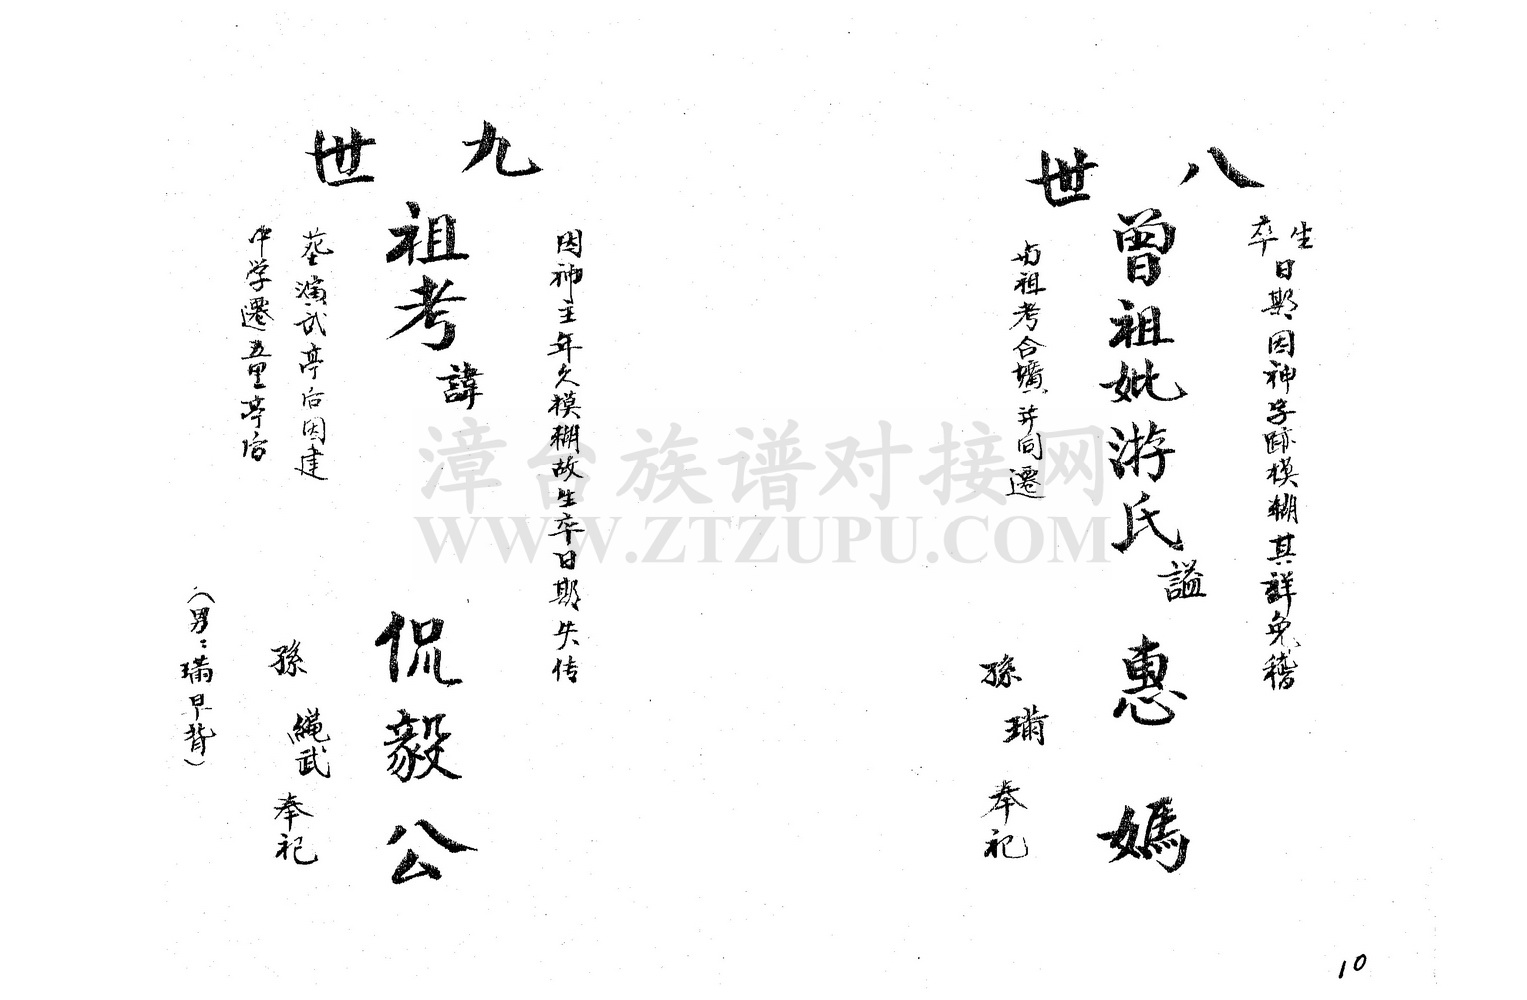 八世
生卒日期因神字跡模糊其詳免稽
曾祖妣游氏諡惠媽
与祖考合壙并同遷
孫 璊 奉祀
九世
因神主年久模糊故生卒日期失传
祖考諱侃毅公
茔演武亭后因建
中学遷五里亭后
孫 繩武 奉祀
（男：璊早贅）
漳台族谱对接网
WWW.ZTZUPU.COM
10